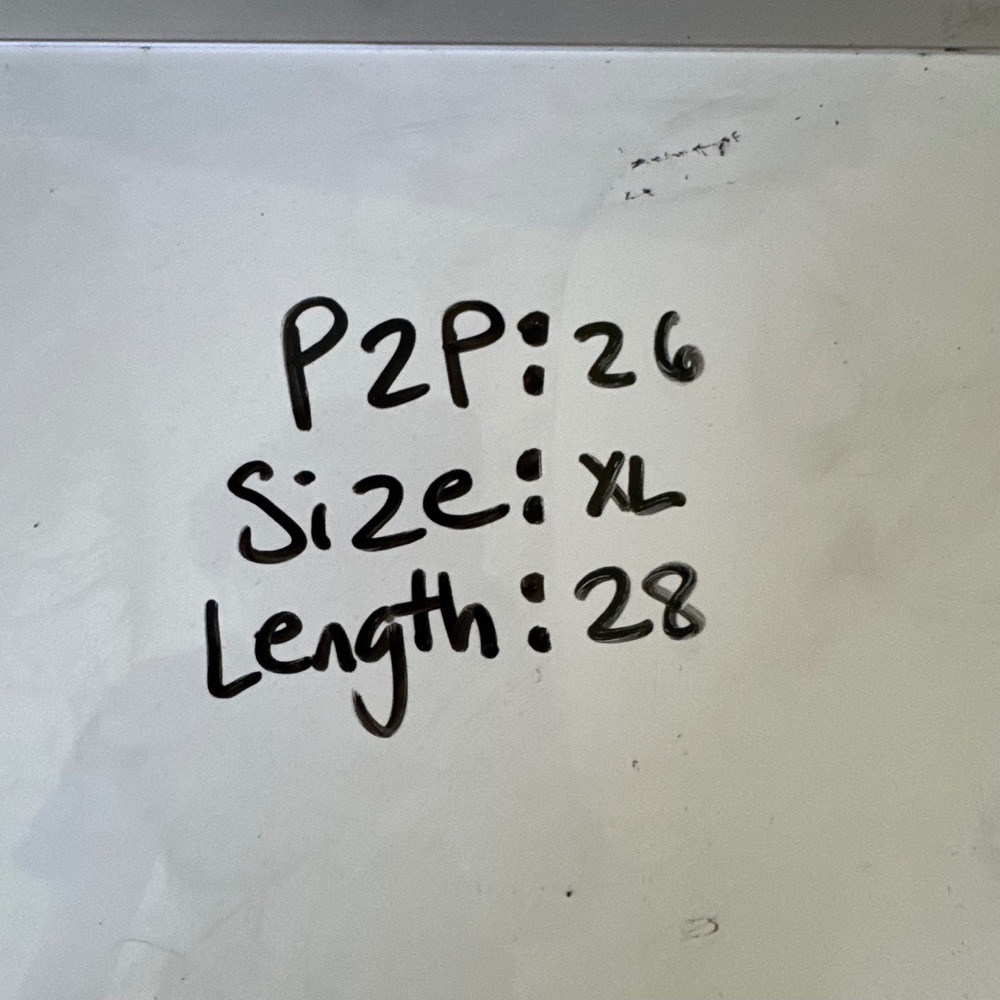 P2P: 26
Size: XL
Length: 28